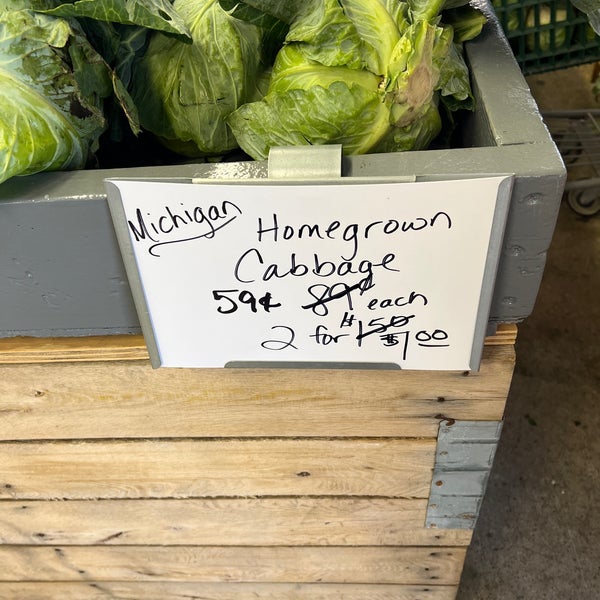 Michigan
Homegrown
Cabbage
59¢ 89¢ each
2 for $1.50 $1.00